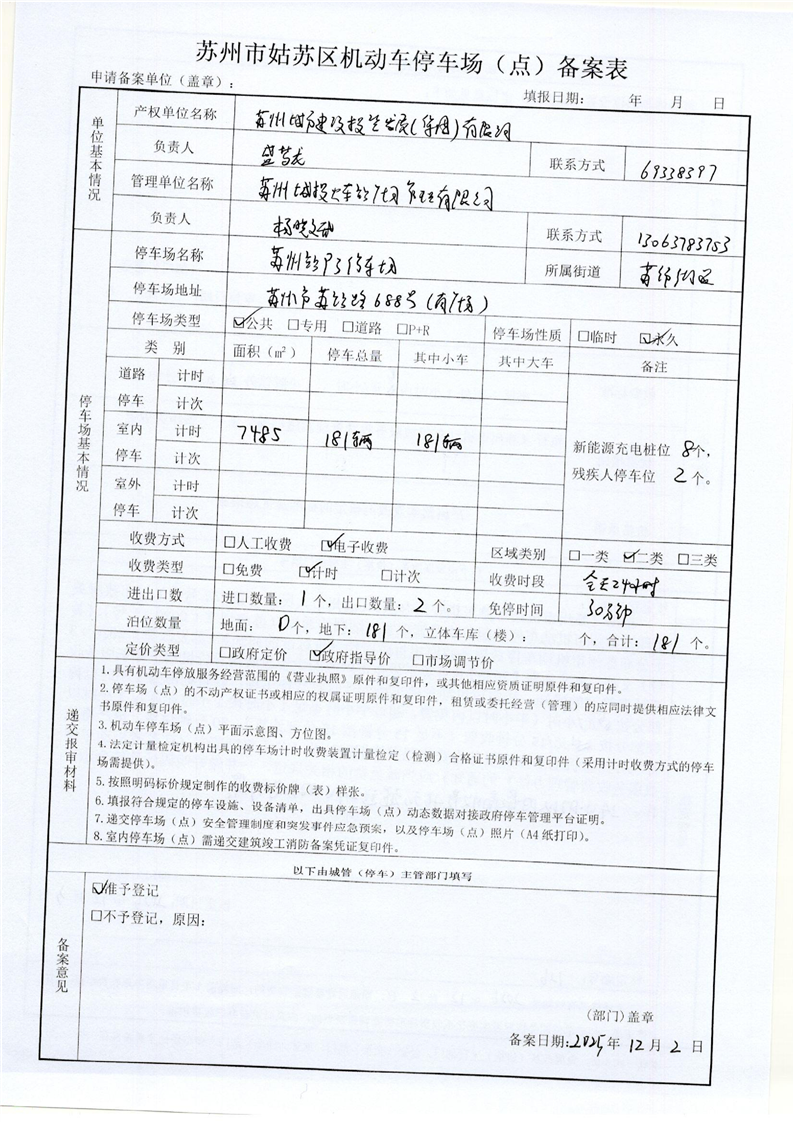 苏州市姑苏区机动车停车场（点）备案表
申请备案单位（盖章）： 填报日期： 年 月 日
单位基本情况
产权单位名称 苏州城市建设投资发展(集团)有限公司
负责人 联系方式 69338397
管理单位名称 苏州城投 管理有限公司
负责人 杨晓 联系方式 13063783753
停车场名称 苏州 停车场 所属街道
停车场地址 苏州市苏站路688号(南广场)
停车场基本情况
停车场类型 ☑公共 □专用 □道路 □P+R 停车场性质 □临时 ☑永久
类 别 面积（m²） 停车总量 其中小车 其中大车 备注
道路停车 计时
计次
室内停车 计时 7485 181辆 181辆
计次
新能源充电桩位 8个，
残疾人停车位 2个。
室外停车 计时
计次
收费方式 □人工收费 ☑电子收费 区域类别 □一类 ☑二类 □三类
收费类型 □免费 ☑计时 □计次 收费时段 全天24小时
进出口数 进口数量：1个，出口数量：2个。 免停时间 30分钟
泊位数量 地面： 0个，地下：181个，立体车库（楼）： 个，合计：181个。
定价类型 □政府定价 ☑政府指导价 □市场调节价
递交报审材料
1.具有机动车停放服务经营范围的《营业执照》原件和复印件，或其他相应资质证明原件和复印件。
2.停车场（点）的不动产权证书或相应的权属证明原件和复印件，租赁或委托经营（管理）的应同时提供相应法律文
书原件和复印件。
3.机动车停车场（点）平面示意图、方位图。
4.法定计量检定机构出具的停车场计时收费装置计量检定（检测）合格证书原件和复印件（采用计时收费方式的停车
场需提供）。
5.按照明码标价规定制作的收费标价牌（表）样张。
6.填报符合规定的停车设施、设备清单，出具停车场（点）动态数据对接政府停车管理平台证明。
7.递交停车场（点）安全管理制度和突发事件应急预案，以及停车场（点）照片（A4纸打印）。
8.室内停车场（点）需递交建筑竣工消防备案凭证复印件。
以下由城管（停车）主管部门填写
备案意见
☑准予登记
□不予登记，原因：
(部门)盖章
备案日期:2025年12月2日